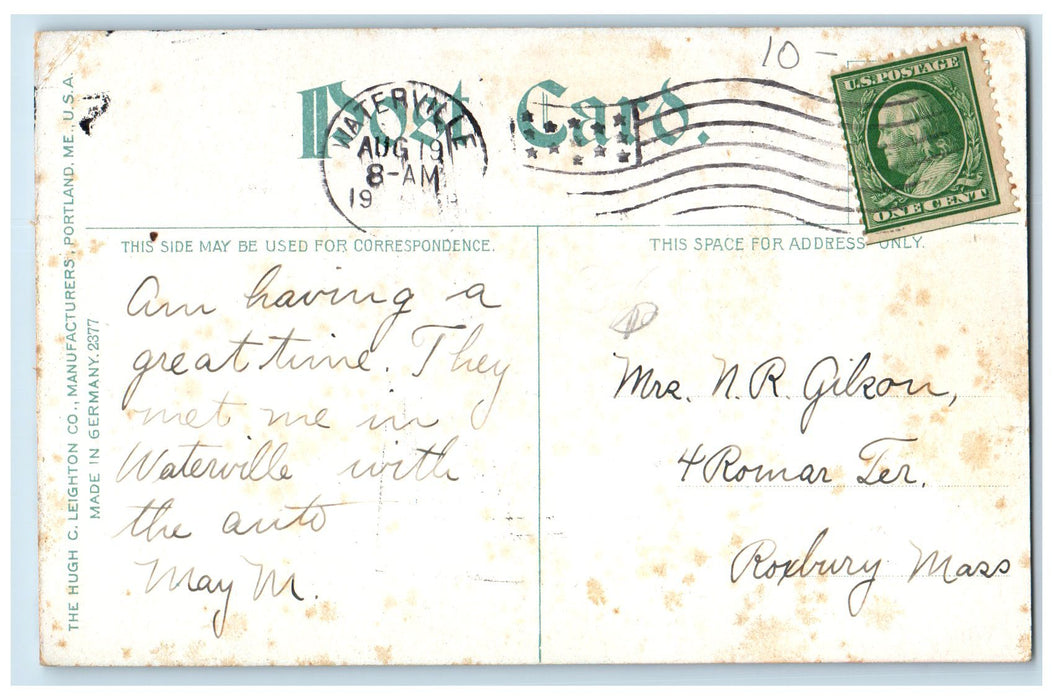 10-
Post Card.
WATERVILLE
AUG 19
8-AM
19
U.S. POSTAGE
ONE CENT
THIS SIDE MAY BE USED FOR CORRESPONDENCE.
THIS SPACE FOR ADDRESS ONLY.
Am having a
great time. They
met me in
Waterville with
the auto
May M.
Mrs. N. R. Gilson,
4 Romar Ter.
Roxbury Mass
THE HUGH C. LEIGHTON CO., MANUFACTURERS, PORTLAND, ME. U.S.A.
MADE IN GERMANY. 2377